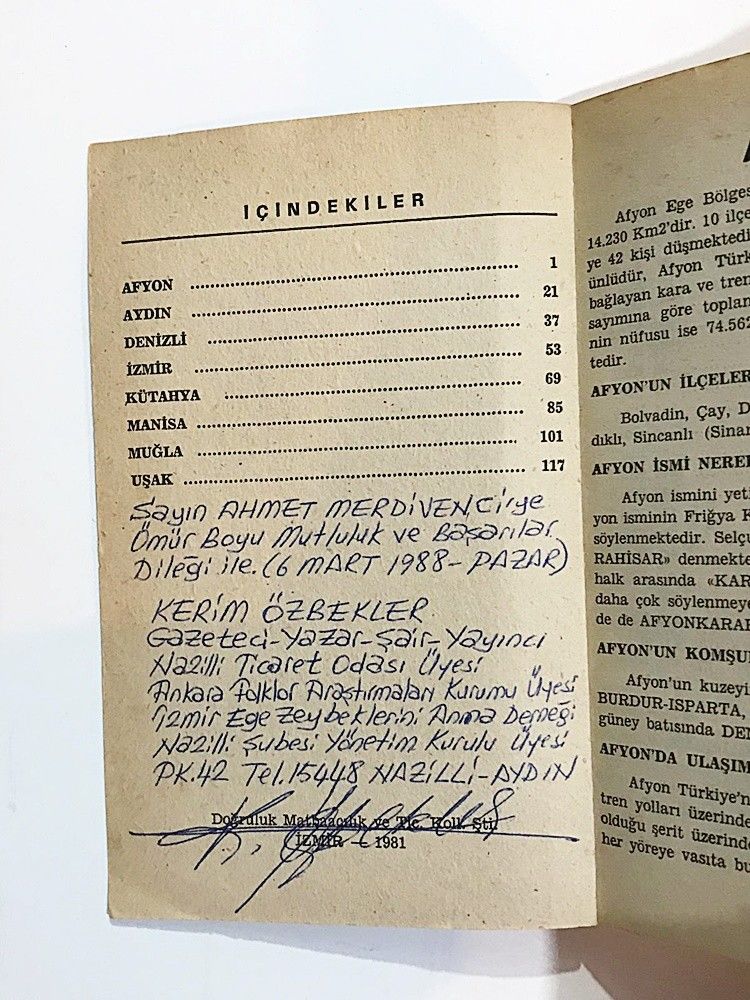 İÇİNDEKİLER
AFYON ........ 1
AYDIN ........ 21
DENİZLİ ........ 37
İZMİR ........ 53
KÜTAHYA ........ 69
MANİSA ........ 85
MUĞLA ........ 101
UŞAK ........ 117
Sayın AHMET MERDİVENCİ'ye
Ömür Boyu Mutluluk ve Başarılar
Dileği ile. (6 MART 1988 - PAZAR)
KERİM ÖZBEKLER
Gazeteci-Yazar-Şair-Yayıncı
Nazilli Ticaret Odası Üyesi
Ankara Folklor Araştırmaları Kurumu Üyesi
İzmir Ege Zeybeklerini Anma Derneği
Nazilli Şubesi Yönetim Kurulu Üyesi
PK.42 Tel.15448 NAZİLLİ-AYDIN
Doğruluk Matbaacılık ve Tic. Koll. Şti.
İZMİR — 1981
Afyon Ege Bölges
14.230 Km2'dir. 10 ilçe
ye 42 kişi düşmektedi
ünlüdür, Afyon Türk
bağlayan kara ve tren
sayımına göre toplan
nin nüfusu ise 74.562
tedir.
AFYON'UN İLÇELER
Bolvadin, Çay, D
dıklı, Sincanlı (Sinan
AFYON İSMİ NERE
Afyon ismini yeti
yon isminin Friğya K
söylenmektedir. Selçu
RAHİSAR» denmekte
halk arasında «KAR
daha çok söylenmeye
de de AFYONKARAH
AFYON'UN KOMŞU
Afyon'un kuzeyi
BURDUR-ISPARTA,
güney batısında DEN
AFYON'DA ULAŞIM
Afyon Türkiye'n
tren yolları üzerinde
olduğu şerit üzerinde
her yöreye vasıta bu